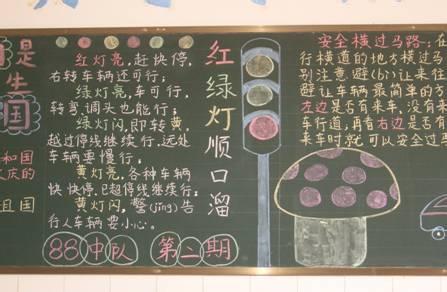 是
生
国
和国
庆的
且国
红灯亮,赶快停,
右转车辆还可行;
绿灯亮,车可行,
转弯调头也能行;
绿灯闪,即转黄,
越过停线继续行,远处
车辆要慢行;
黄灯亮,各种车辆
快快停,已超停线继续行;
黄灯闪,警(jǐng)告
行人车辆要小心。
88中队 第二期
红绿灯顺口溜
安全横过马路:在
行横道的地方横过马
别注意避(bì)让来往
避让车辆最简单的方
左边是否有来车,没有来
车行道;再看右边是否有
来车时就可以安全过